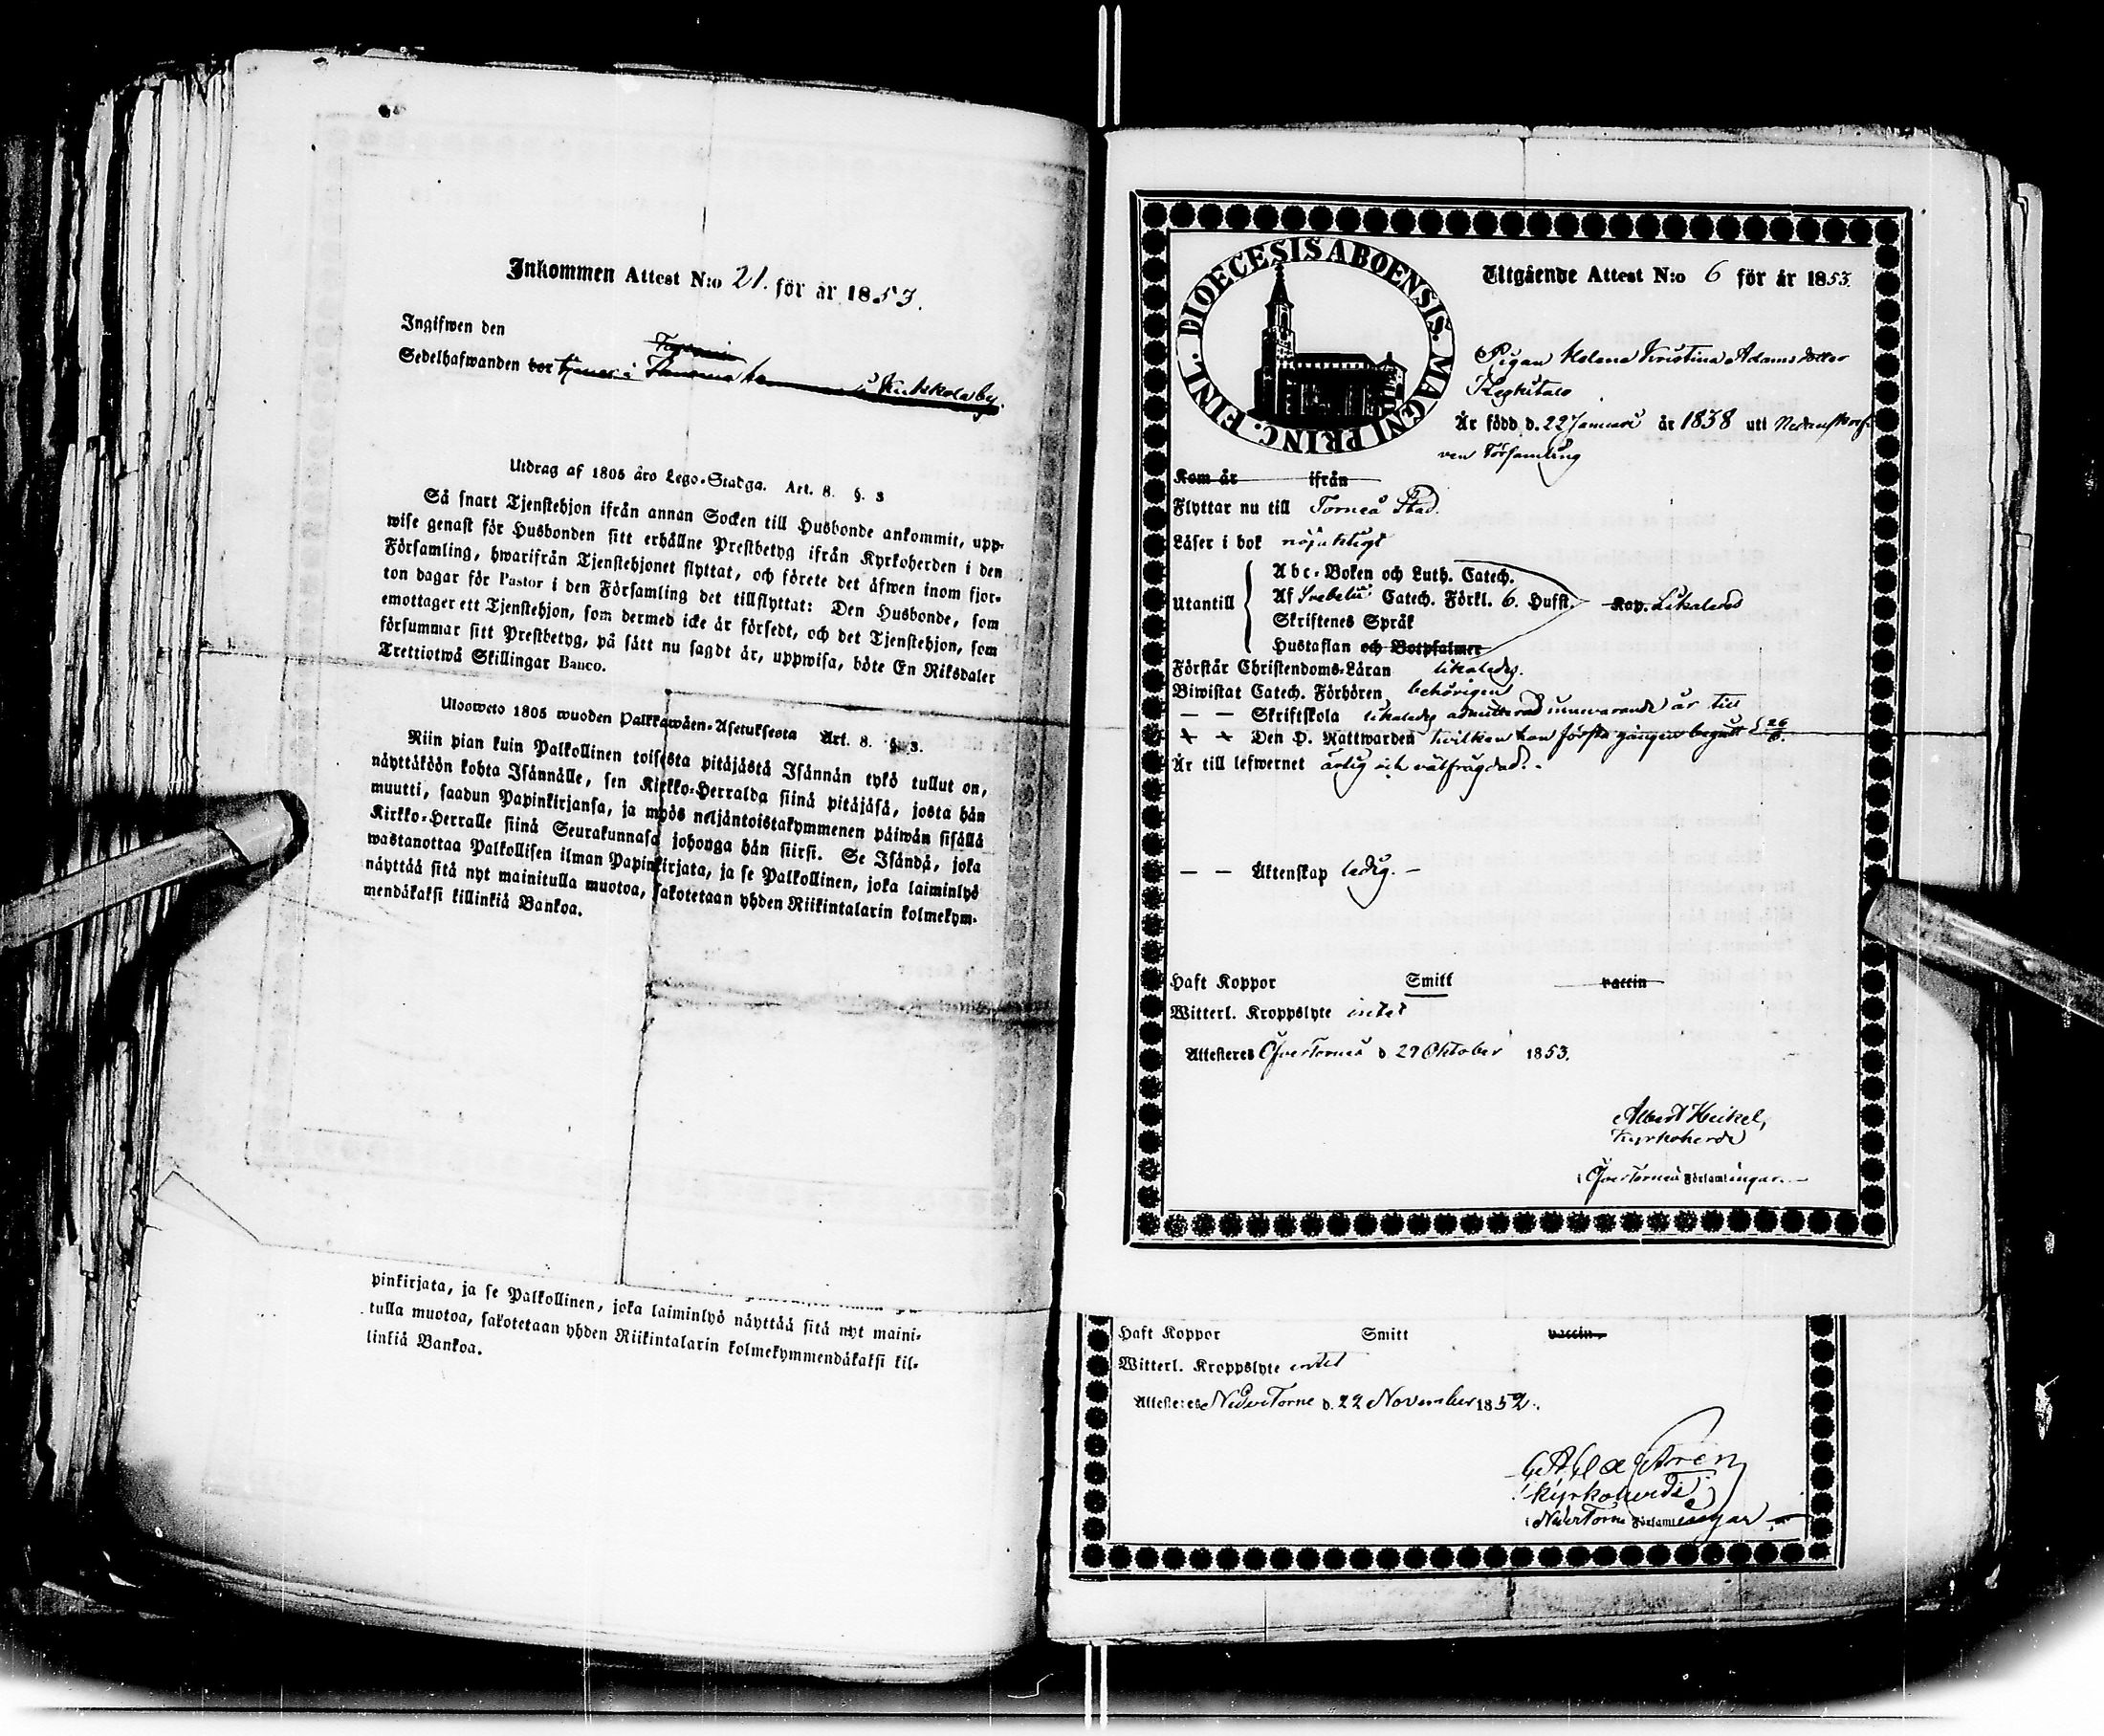 Inkommen Attest N:o 21. för år 1853.
Ingifwen den
Sedelhafwanden bor tjenar i i Kukkola by.
Utdrag af 1805 års Lego-Stadga. Art. 8. §. 3
Så snart Tjenstehjon ifrån annan Socken till Husbonde ankommit, upp-
wise genast för Husbonden sitt erhållne Prestbetyg ifrån Kyrkoherden i den
Församling, hwarifrån Tjenstehjonet flyttat, och förete det äfwen inom fjor-
ton dagar för Pastor i den Församling det tillflyttat: Den Husbonde, som
emottager ett Tjenstehjon, som dermed icke är försedt, och det Tjenstehjon, som
försummar sitt Prestbetyg, på sätt nu sagdt är, uppwisa, böte En Riksdaler
Trettiotwå Skillingar Banco.
Ulosweto 1805 wuoden Palkkawäen-Asetuksesta Art. 8. §. 3.
Niin pian kuin Palkollinen toisesta pitäjästä Isännän tykö tullut on,
näyttäköön kohta Isännälle, sen Kirkko-Herralda siinä pitäjäsä, josta hän
muutti, saadun Papinkirjansa, ja myös neljäntoistakymmenen päiwän sisällä
Kirkko-Herralle siinä Seurakunnasa johonga hän siirsi. Se Isändä, joka
wastanottaa Palkollisen ilman Papinkirjata, ja se Palkollinen, joka laiminlyö
näyttää sitä nyt mainitulla muotoa, sakotetaan yhden Riikintalarin kolmekym-
mendäkaksi killinkiä Bankoa.
pinkirjata, ja se Palkollinen, joka laiminlyö näyttää sitä nyt maini-
tulla muotoa, sakotetaan yhden Riikintalarin kolmekymmendäkaksi kil-
linkiä Bankoa.
DIOECESIS ABOENSIS. MAGNI PRINC. FINL.
Utgående Attest N:o 6 för år 1853.
Pigan Helena Kristina Adamsdotter
Är född d. 22 Januari år 1838 uti
ven Församling
Kom år ifrån
Flyttar nu till Torneå Stad.
Läser i bok nöjaktigt
Utantill
Abc-Boken och Luth. Catech.
Af Svebelii Catech. Förkl. 6. Hufst. Kap. likaledes
Skriftenes Språk
Hustaflan och Botpsalmer
Förstår Christendoms-Läran likaledes.
Biwistat Catech. Förhören behörigen
— — Skriftskola likaledes admitterad innevarande år till
— — Den H. Nattwarden hvilken hon första gången begått 26/6.
Är till lefwernet ärlig och välfrägdad.
— — Äktenskap ledig. —
Haft Koppor Smitt vaccin
Witterl. Kroppslyte intet
Attesteres ÖfverTorneå d 29 Oktober 1853.
Albert Heikel,
Kyrkoherde
i ÖfverTorneå Församlingar.
Haft Koppor Smitt vaccin.
Witterl. Kroppslyte intet
Attesteres NederTorne d. 22 November 1852.
Kyrkoherde
i NederTorne Församlingar